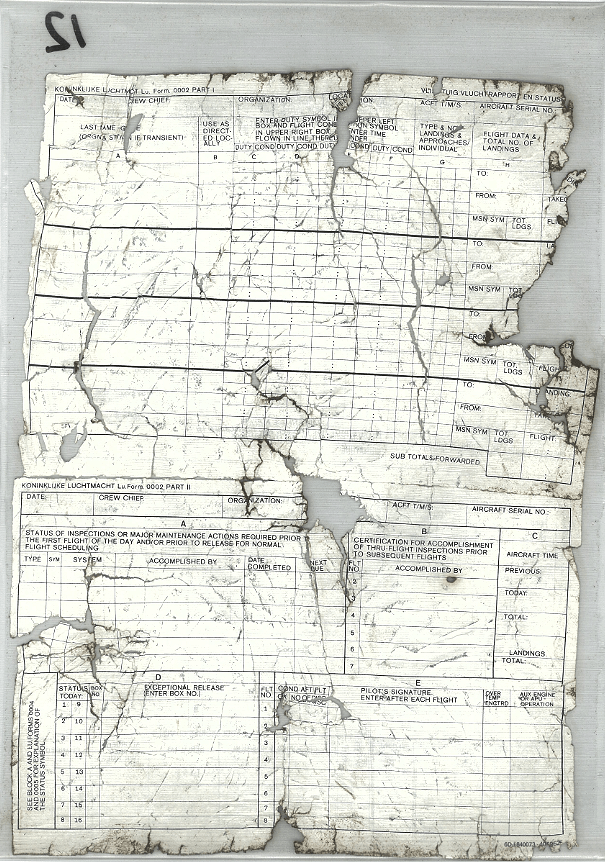 12
KONINKLIJKE LUCHTMCHT Lu. Form. 0002 PART I
VLUCHTRAPPORT EN STATUS
DATE:
CREW CHIEF:
ORGANIZATION:
ACFT T/M/S:
AIRCRAFT SERIAL NO.:
LAST NAME
(ORG & STN IF TRANSIENT)
USE AS
DIRECT-
ED LOC-
ALLY
ENTER DUTY SYMBOL I
BOX AND FLIGHT COND
IN UPPER RIGHT BOX
FLOWN IN LINE THERE
UPPER LEFT
SYMBOL
TIME
DUTY COND DUTY COND DU
COND DUTY COND
TYPE & NO.
LANDINGS &
APPROACHES/
INDIVIDUAL
FLIGHT DATA &
TOTAL NO. OF
LANDINGS
A B C D G H
TO:
FROM:
TAKEO
MSN SYM TOT. LDGS FLI
TO: LA
FROM:
MSN SYM TOT. LDGS
TO:
FROM
MSN SYM TOT. LDGS FLIGHT
TO: ANDING
FROM:
MSN SYM TOT. LDGS FLIGHT
SUB TOTALS FORWARDED
KONINKLIJKE LUCHTMACHT Lu. Form. 0002 PART II
DATE:
CREW CHIEF:
ORGANIZATION:
ACFT T/M/S:
AIRCRAFT SERIAL NO.:
A
STATUS OF INSPECTIONS OR MAJOR MAINTENANCE ACTIONS REQUIRED PRIOR
THE FIRST FLIGHT OF THE DAY AND/OR PRIOR TO RELEASE FOR NORMAL
FLIGHT SCHEDULING
TYPE SYM SYSTEM ACCOMPLISHED BY DATE COMPLETED NEXT DUE
B
CERTIFICATION FOR ACCOMPLISHMENT
OF THRU-FLIGHT INSPECTIONS PRIOR
TO SUBSEQUENT FLIGHTS
FLT NO. ACCOMPLISHED BY
2
3
4
5
6
7
C
AIRCRAFT TIME
PREVIOUS:
TODAY:
TOTAL:
LANDINGS
TOTAL:
D
SEE BLOCK A AND LU FORMS 0004
AND 0005 FOR EXPLANATION OF
THE STATUS SYMBOL
STATUS TODAY:
BOX NO.
EXCEPTIONAL RELEASE
(ENTER BOX NO.)
1 9
2 10
3 11
4 12
5 13
6 14
7 15
8 16
E
FLT NO.
COND AFT FLT
OK NO OF DISC
PILOT'S SIGNATURE.
ENTER AFTER EACH FLIGHT
OVER
TEMP
ENGTRD
AUX ENGINE
OR APU
OPERATION
1
2
3
4
5
6
7
8